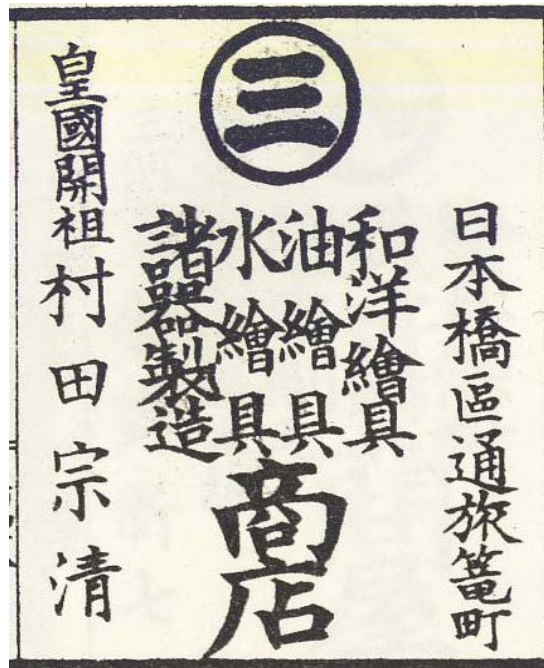 三
日本橋區通旅篭町
和洋繪具
油繪具
水繪具
諸器製造
商店
皇國開祖村田宗清